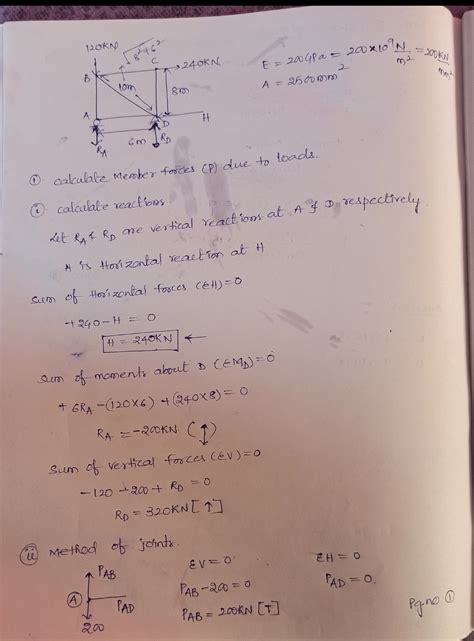 120KN
√8²+6²
B
C
240KN
10m
8m
A
D
H
R_A
6m
R_D
E = 200GPa = 200×10⁹ N/m² = 200KN/mm²
A = 2500mm²
① calculate Member forces (P) due to loads.
ⓘ calculate reactions
Let R_A & R_D are vertical reactions at A & D respectively
H is Horizontal reaction at H
Sum of Horizontal forces (ΣH)=0
+240-H = 0
H = 240KN ←
Sum of moments about D (ΣM_D)=0
+6R_A-(120×6)+(240×8)=0
R_A = -200KN (↑)
Sum of vertical forces (ΣV)=0
-120-200+ R_D = 0
R_D = 320KN [↑]
ⓘⓘ Method of joints.
P_AB
A
P_AD
200
ΣV=0
P_AB-200=0
P_AB = 200KN [T]
ΣH = 0
P_AD = 0.
Pg.no ①